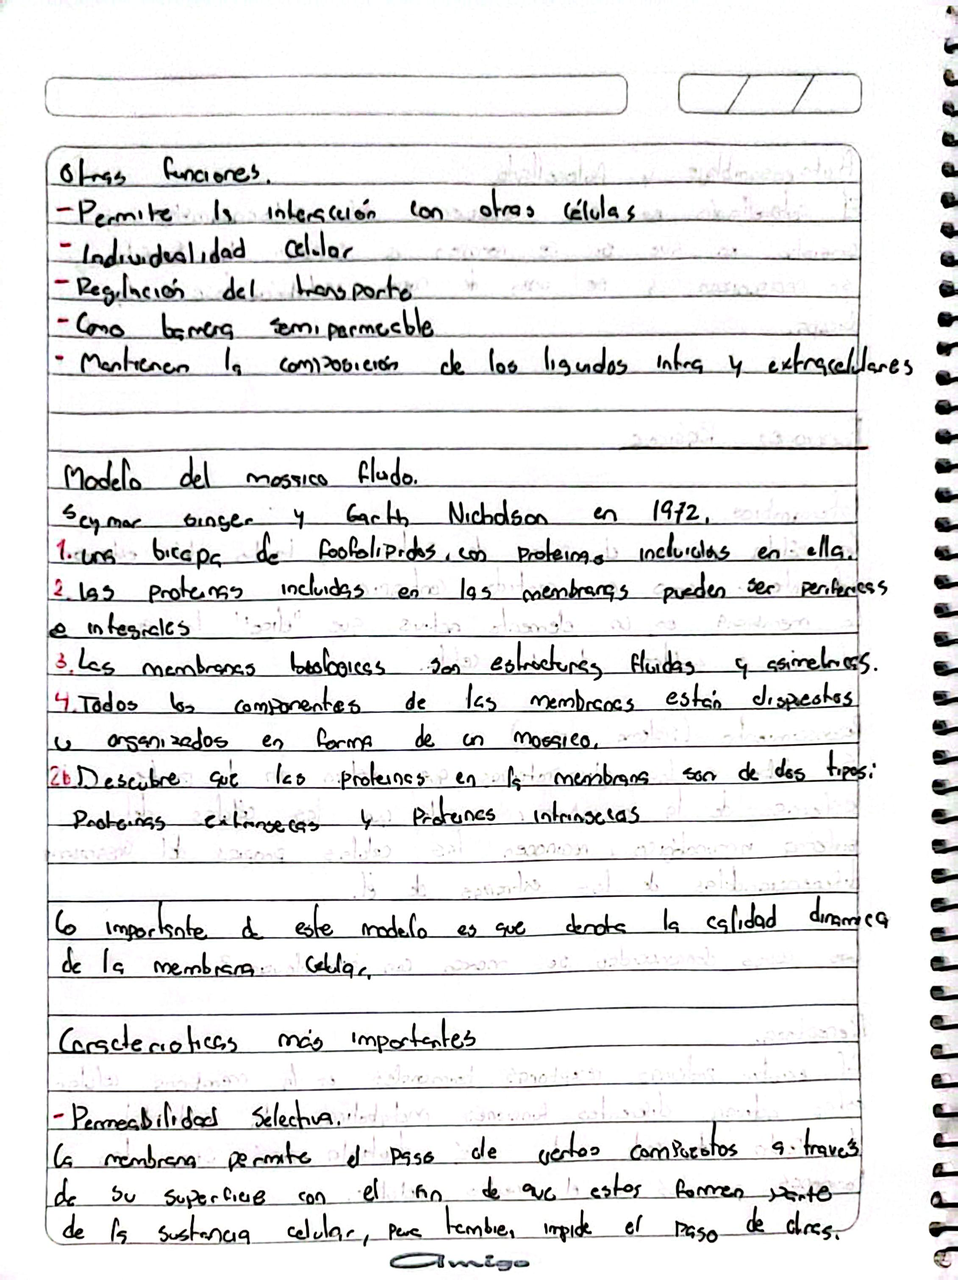 Otras funciones.
- Permite la interacción con otras células
- Individualidad celular
- Regulación del transporte
- Como barrera semipermeable
- Mantienen la composición de los liquidos intra y extracelulares
Modelo del mosaico fluido.
Seymor singer y Garth Nicholson en 1972.
1. una bicapa de fosfolipidos, con proteinas incluidas en ella.
2. Las proteinas incluidas en las membranas pueden ser perifericas
e integrales
3. Las membranas biologicas son estructuras fluidas y asimetricas.
4. Todos los componentes de las membranas están dispuestos
u organizados en forma de un mosaico.
2b Descubre que las proteinas en la membrana son de dos tipos:
Proteinas extrinsecas y Proteinas intrinsecas
Lo importante de este modelo es que denota la calidad dinamica
de la membrana celular.
Caracteristicas más importantes
- Permeabilidad Selectiva.
La membrana permite el paso de ciertos compuestos a traves
de su superficie con el fin de que estos formen parte
de la sustancia celular, pero tambien impide el paso de otras.
Amigo